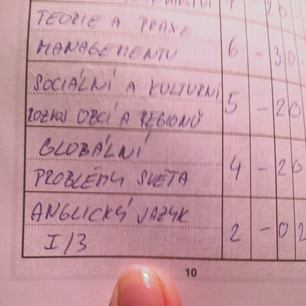 TEORIE A PRAXE
MANAGEMENTU 6 - 30
SOCIÁLNÍ A KULTURNÍ
ROZVOJ OBCÍ A REGIONŮ 5 - 20
GLOBÁLNÍ
PROBLÉMY SVĚTA 4 - 20
ANGLICKÝ JAZYK
I/3 2 - 02
10